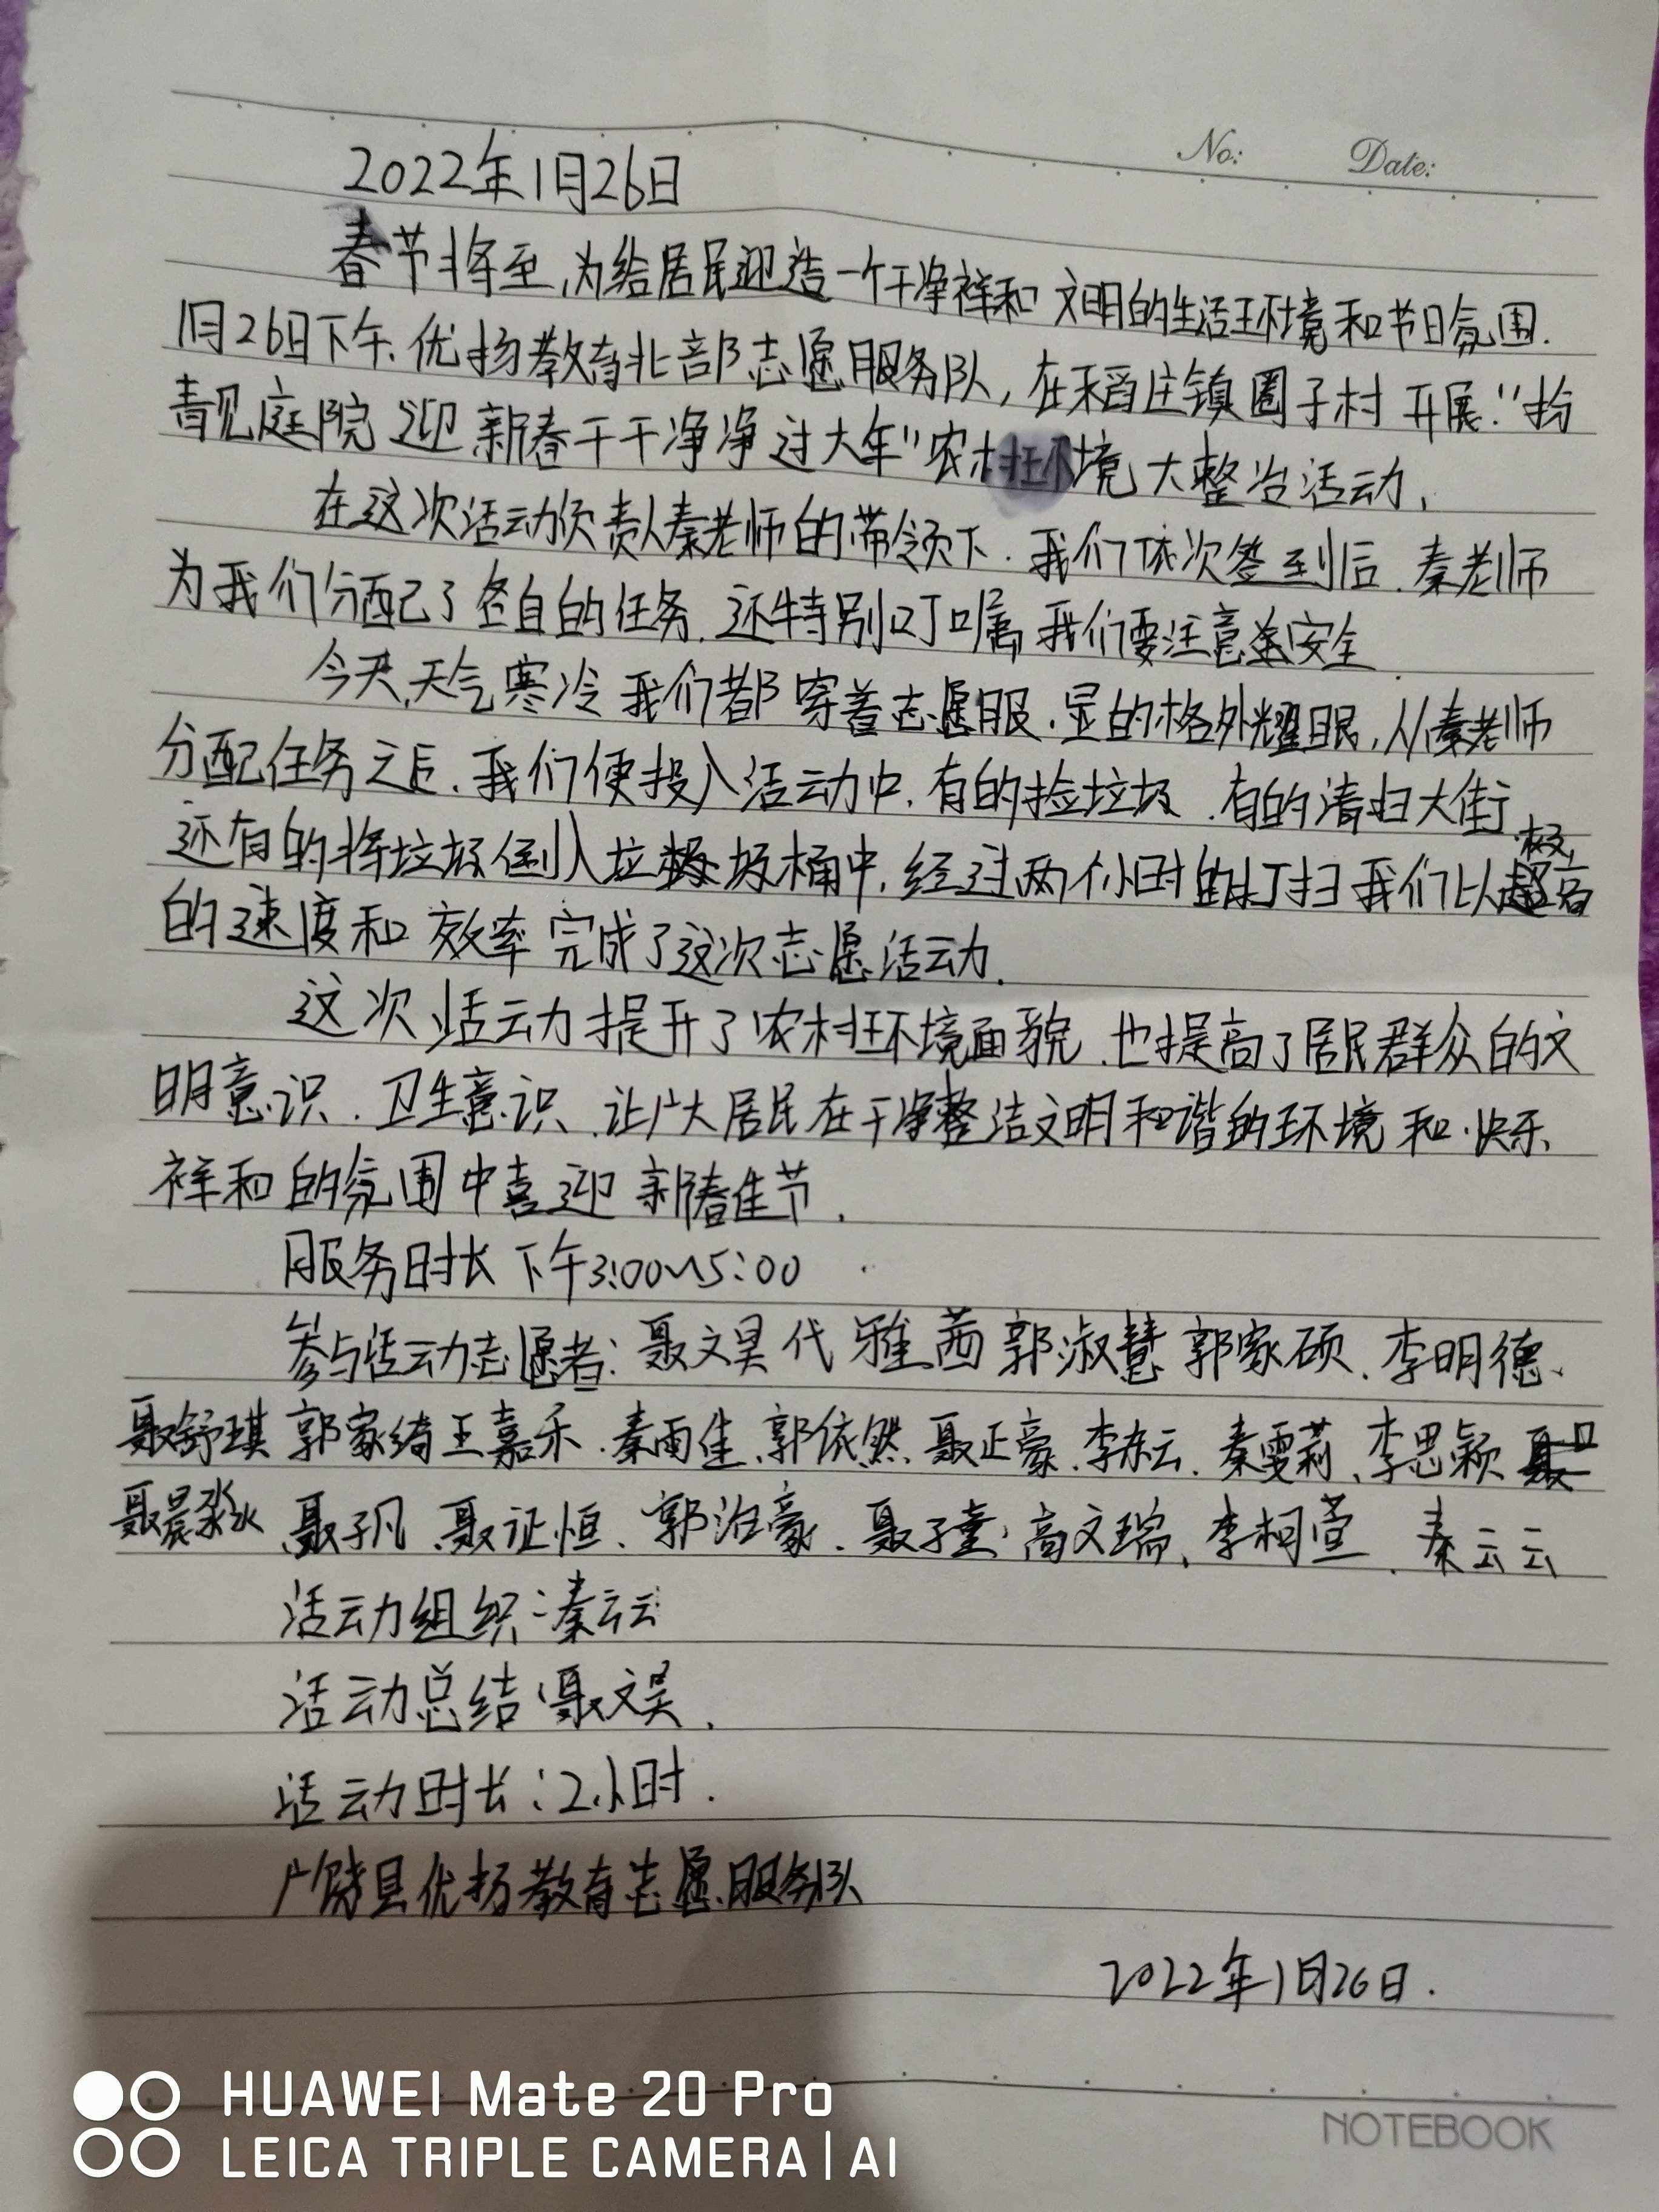 No: Date:
2022年1月26日
春节将至,为给居民迎造一个干净祥和 文明的生活环境和节日氛围.
1月26日下午.优扬教育北部志愿服务队,在稻庄镇圈子村 开展."扮
靓庭院 迎新春干干净净过大年"农村环境大整治活动,
在这次活动负责人秦老师的带领下.我们依次签到后.秦老师
为我们分配了各自的任务.还特别叮嘱我们要注意安全
今天,天气寒冷我们都穿着志愿服.显的格外耀眼,从秦老师
分配任务之后.我们便投入活动中.有的捡垃圾.有的清扫大街
还有的将垃圾倒入垃圾桶中.经过两个小时的打扫我们以极高
的速度和效率完成了这次志愿活动.
这次活动提升了农村环境面貌.也提高了居民群众的文
明意识.卫生意识.让广大居民在干净整洁文明和谐的环境和快乐
祥和的氛围中喜迎新春佳节.
服务时长下午3:00~5:00
参与活动志愿者:聂文昊代雅茜郭淑慧郭家硕.李明德、
聂舒琪郭家绮王嘉禾.秦雨佳.郭依然.聂正豪.李东云.秦雯莉、李思颖
聂晨淼、聂子凡、聂证恒、郭泊豪、聂子童、高文瑞、李柯萱、秦云云
活动组织:秦云云
活动总结:聂文昊.
活动时长:2小时.
广饶县优扬教育志愿服务队
2022年1月26日.
NOTEBOOK
HUAWEI Mate 20 Pro
LEICA TRIPLE CAMERA | AI